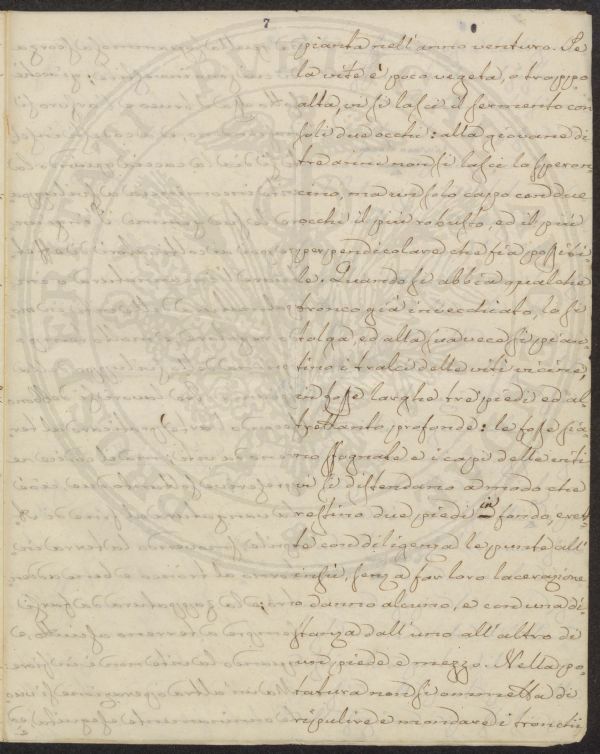 7
pianta nell'anno venturo. Se
la vite è poco vegeta, o troppo
alta, vi si lasci il sermento con
soli due occhi: alla giovane di
tre anni non si lasci lo speron-
cino, ma un solo cappo con due
occhi il più robusto, ed il più
perpendicolare che sia possibi-
le. Quando si abbia qualche
tronco già invecchiato, lo si
tolga, ed alla sua vece si pian-
tino i tralci delle viti vicine,
in fosse larghe tre piedi ed al-
trettanto profonde: le fosse sia-
no fognate e i capi delle viti
vi si distendano a modo che
restino due piedi in fondo, eret-
te con diligenza le punte all'
insù, senza far loro lacerazione
o danno alcuno, e con una di-
stanza dall'uno all'altro di
un piede e mezzo. Nella po-
tatura non si ommetta di
ripulire e mondare i tronchi